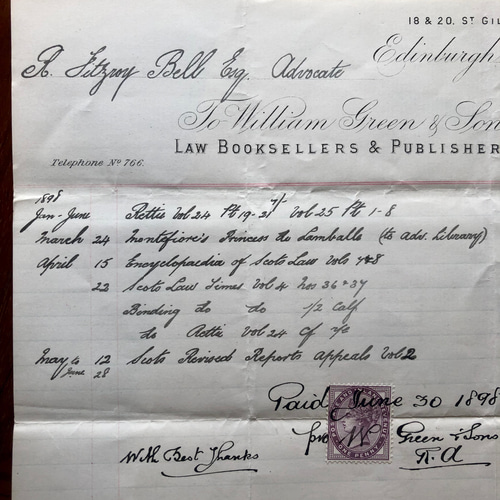 18 & 20, ST GIL
Edinburgh
A. Fitzroy Bell Esq. Advocate
To William Green & Son
LAW BOOKSELLERS & PUBLISHER
Telephone No 766.
1898
Jan-June Rettie Vol 24 Pt 19-21 Vol 25 Pt 1-8
March 24 Montefiore's Princess de Lamballe (to adv. Library)
April 15 Encyclopaedia of Scots Law Vols 7&8
22 Scots Law Times Vol 4 Nos 36 & 37
Binding do do 1/2 Calf
do Rettie Vol 24 Cf
May to 12 Scots Revised Reports Appeals Vol 2
June 28
Paid June 30 1898
pro W Green & Sons
With Best Thanks
ONE PENNY